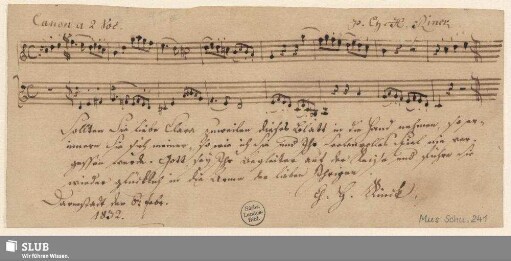 Canon a 2 Voc.
p. Ch. H. Rinck.
Sollten Sie liebe Clara zuweilen dieses Blatt in die Hand nehmen, so er-
innern Sie sich meiner, so wie ich Sie und Ihr Spiel nie ver-
gessen werde. Gott sey Ihr Begleiter auf der Reise und führe Sie
wieder glücklich in die Arme der lieben Ihrigen.
Darmstadt den Febr.
1832.
Ch. H. Rinck.
Mus. Schu. 241
SLUB
Wir führen Wissen.